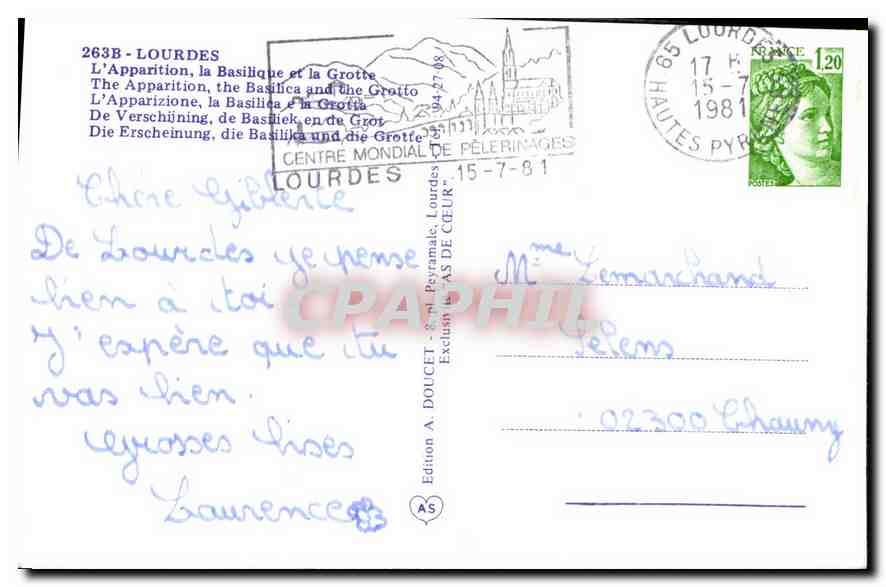 263B - LOURDES
L'Apparition, la Basilique et la Grotte
The Apparition, the Basilica and the Grotto
L'Apparizione, la Basilica e la Grotta
De Verschijning, de Basiliek en de Grot
Die Erscheinung, die Basilika und die Grotte
CENTRE MONDIAL DE PÈLERINAGES
LOURDES 15-7-81
65 LOURDES
17 H
15-7
1981
HAUTES PYR
FRANCE
1,20
POSTES
Chère Gilberte
De Lourdes je pense
bien à toi
J'espère que tu
vas bien.
Grosses bises
Laurence
Edition A. DOUCET - 8, pl. Peyramale, Lourdes 94-27-08
Exclusivité "AS DE CŒUR"
AS
Mme Lemarchand
Selens
02300 Chauny
CPAPHIL